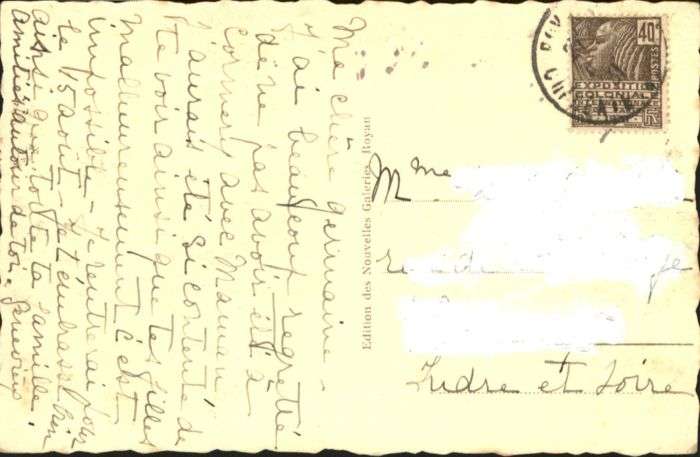 Ma chère Germaine –
J'ai beaucoup regretté
de ne pas avoir été à
Cormery avec Maman
j'aurais été si contente de
te voir ainsi que tes filles
malheureusement c'est
impossible – Je rentrerai pour
le 15 août – Je t'embrasse bien
ainsi que toute ta famille.
amitiés autour de toi – Geneviève
Edition des Nouvelles Galeries, Royan
40c
POSTES
EXPOSITION
COLONIALE
RF
Mme
Indre et Loire